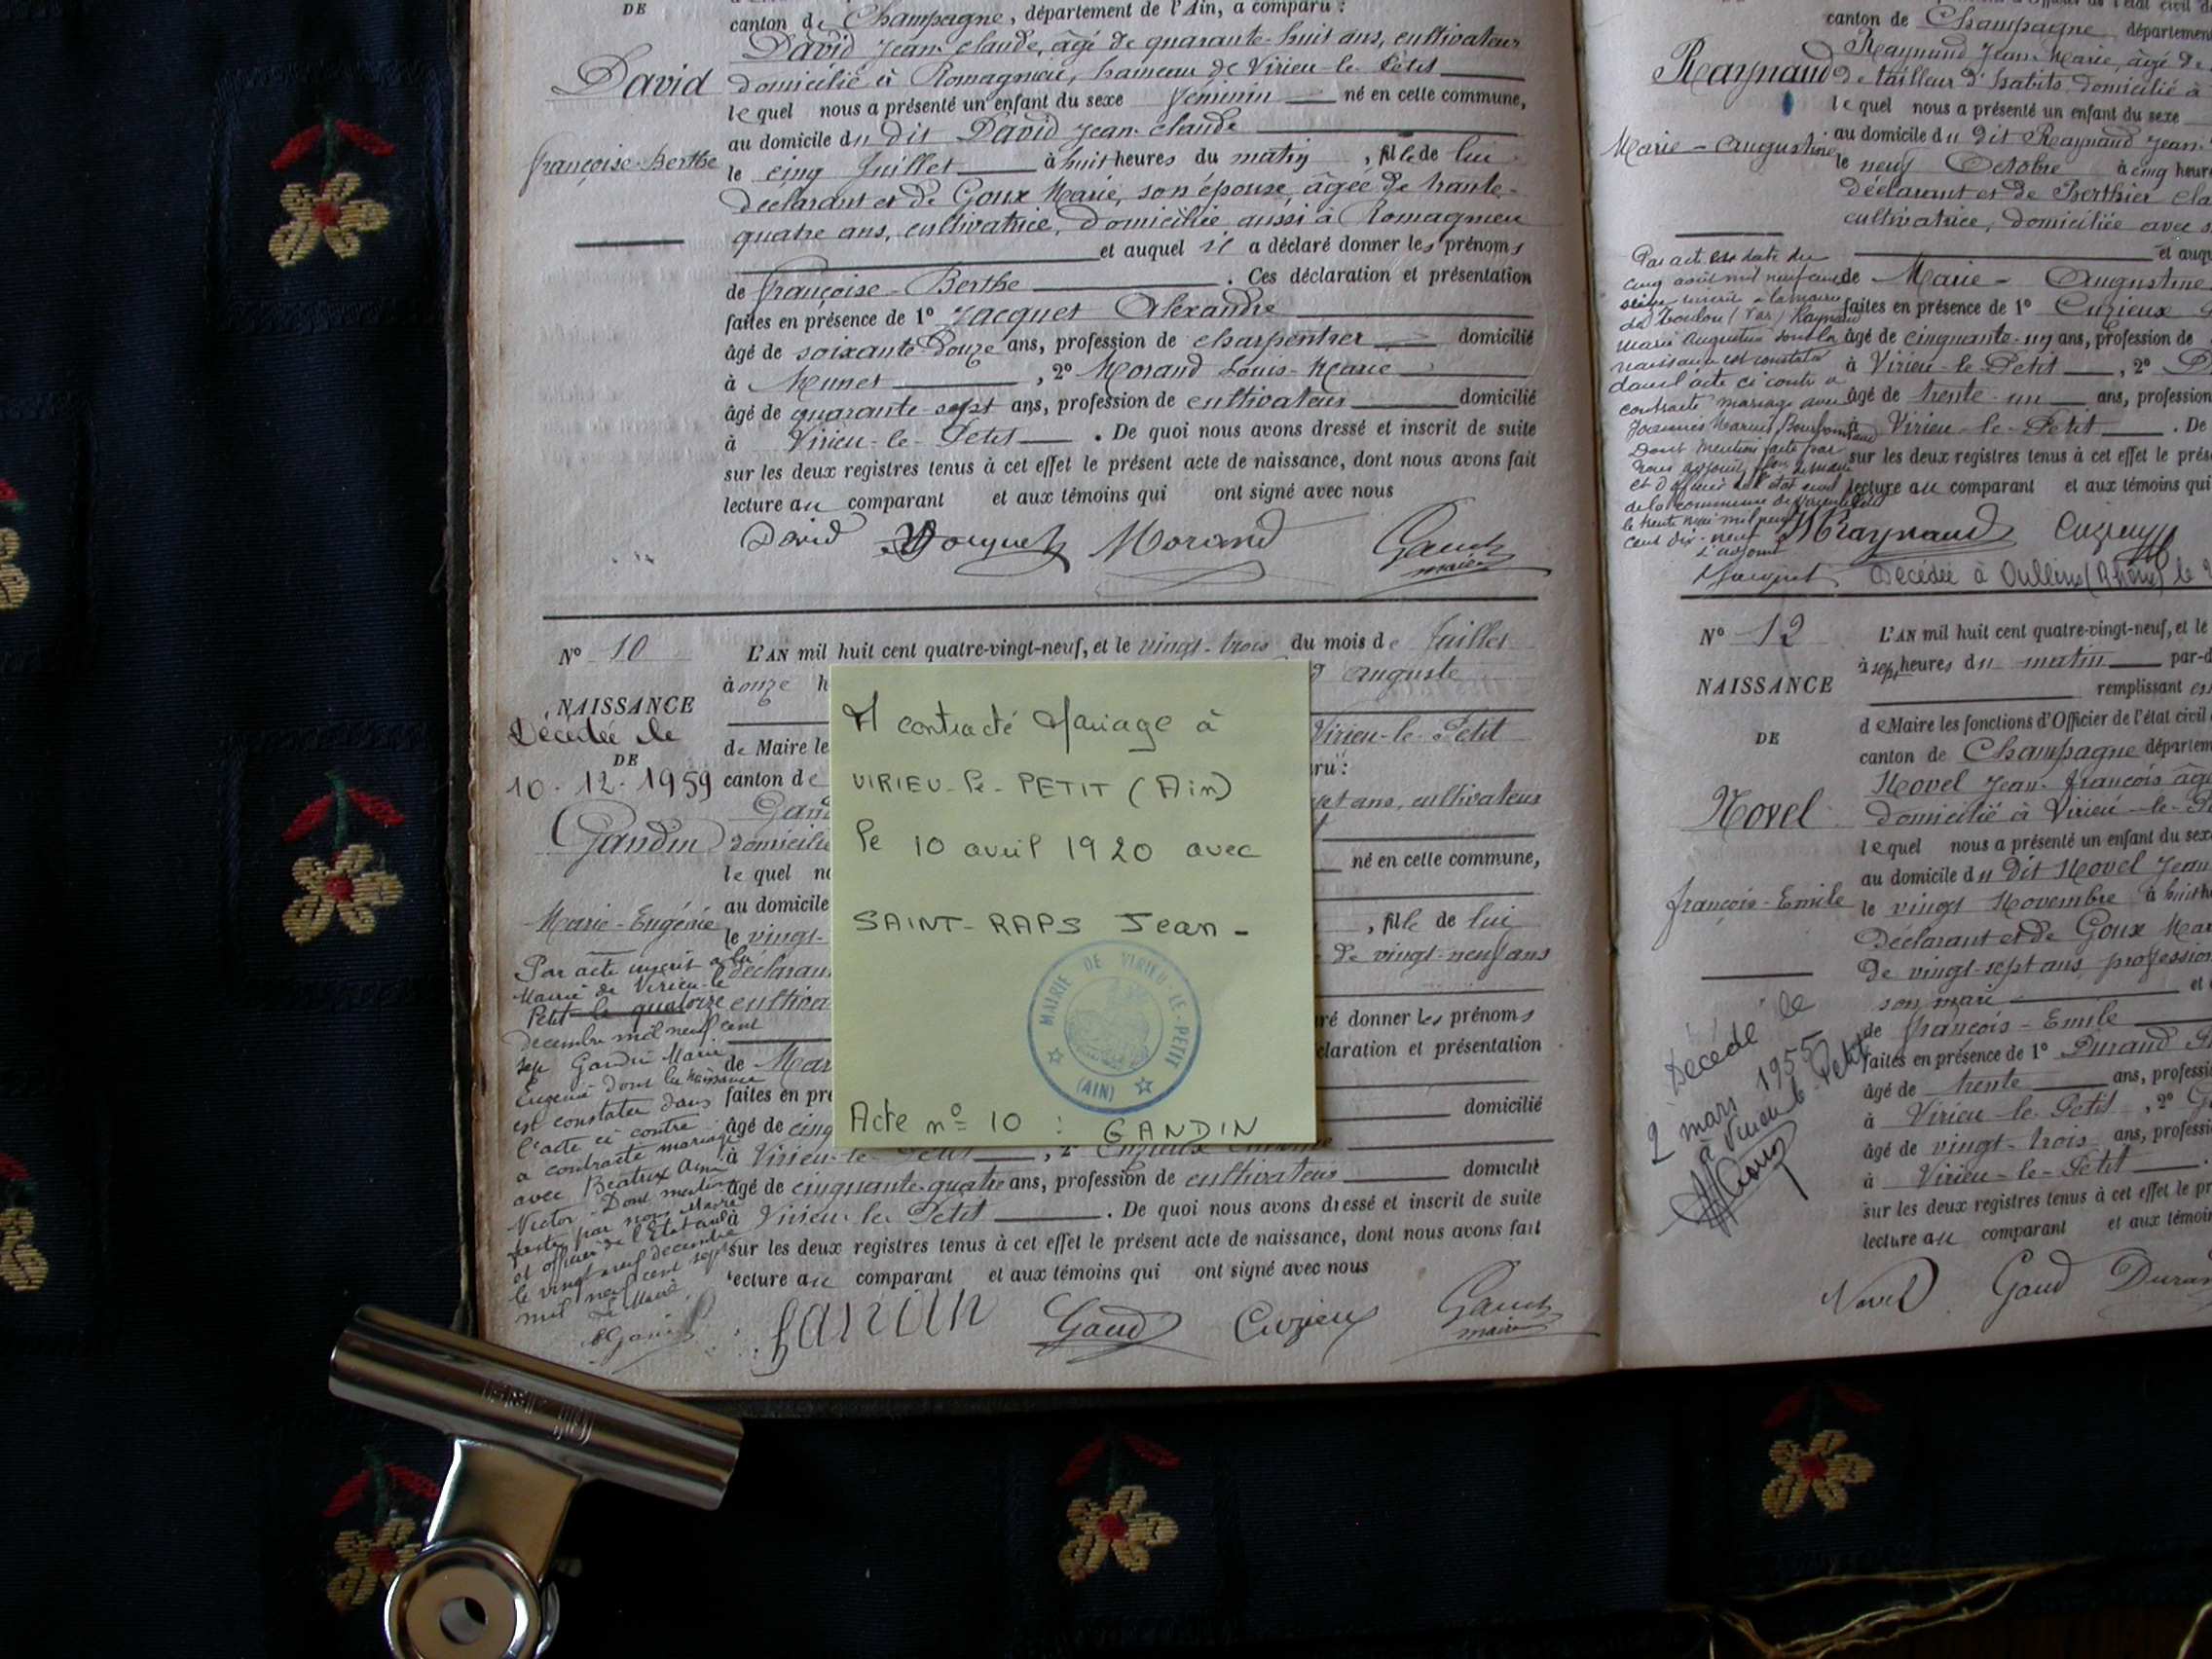 DE
canton de Champagne, département de l'Ain, a comparu :
David Jean-Claude, âgé de quarante-huit ans, cultivateur
David
domicilié à Romagnieu, hameau de Virieu-le-Petit
le quel nous a présenté un enfant du sexe féminin né en cette commune,
au domicile du dit David Jean-Claude
Françoise-Berthe
le cinq Juillet à huit heures du matin, fille de lui
déclarant et de Goux Marie, son épouse, âgée de trente-
quatre ans, cultivatrice, domiciliée aussi à Romagnieu
et auquel il a déclaré donner les prénoms
de Françoise-Berthe. Ces déclaration et présentation
faites en présence de 1º Jacquet Alexandre
âgé de soixante-douze ans, profession de charpentier domicilié
à Munet, 2º Morand Louis-Marie
âgé de quarante-sept ans, profession de cultivateur domicilié
à Virieu-le-Petit. De quoi nous avons dressé et inscrit de suite
sur les deux registres tenus à cet effet le présent acte de naissance, dont nous avons fait
lecture au comparant et aux témoins qui ont signé avec nous
David Jacquet Morand Gaud
maire
Nº 10
NAISSANCE
Décédée le
DE
10.12.1959
Gandin
Marie-Eugénie
Par acte inscrit à la
Mairie de Virieu-le
Petit le quatorze
decembre mil neuf cent
sept Gandin Marie
Eugénie dont la naissance
est constatée dans
l'acte ci contre
a contracté mariage
avec Béatrix
Victor. Dont mention
faite par nous Maire
et officier de l'Etat civil
le vingt neuf decembre
mil neuf cent sept
Le Maire
L'AN mil huit cent quatre-vingt-neuf, et le vingt-trois du mois de Juillet
à onze h
Auguste
Virieu-le-Petit
de Maire les
canton de
ru :
Gand
sept ans, cultivateur
domicilié
le quel no
né en cette commune,
au domicile
le vingt-
, fille de lui
déclaran
de vingt-neuf ans
cultiva
ré donner les prénoms
de Mar
claration et présentation
faites en pré
domicilié
âgé de cinq
à Virieu-le-Petit, 2º Cuzieux
âgé de cinquante-quatre ans, profession de cultivateur domicilié
à Virieu-le-Petit. De quoi nous avons dressé et inscrit de suite
sur les deux registres tenus à cet effet le présent acte de naissance, dont nous avons fait
lecture au comparant et aux témoins qui ont signé avec nous
gandin Gaud Cuzieux Gaud
maire
A contracté Mariage à
VIRIEU-le-PETIT (Ain)
le 10 avril 1920 avec
SAINT-RAPS Jean-
MAIRIE DE VIRIEU-LE-PETIT
(AIN)
Acte nº 10 : GANDIN
canton de Champagne, département
Raynaud Jean-Marie, âgé de
Raynaud
de tailleur d'habits, domicilié à
le quel nous a présenté un enfant du sexe
au domicile du dit Raynaud Jean-
Marie-Augustine
le neuf Octobre à cinq heure
déclarant et de Berthier Cla
cultivatrice, domiciliée avec s
et auqu
de Marie-Augustine
faites en présence de 1º Cuzieux
âgé de cinquante-un ans, profession de
à Virieu-le-Petit, 2º
âgé de trente-un ans, profession
à Virieu-le-Petit. De
sur les deux registres tenus à cet effet le prés
lecture au comparant et aux témoins qui
Par acte en date du
cinq août mil neuf cent
seize inscrit à la mairie
de Toulon (Var) Raynaud
Marie Augustine dont la
naissance est constatée
dans l'acte ci contre a
contracté mariage avec
Dont mention faite par
nous adjoint
et officier de l'état civil
de la commune de Virieu le Petit
le trente mai mil neuf
cent dix-neuf
L'adjoint
Jacquet
Raynaud Cuzieux
Décédée à Oullins (Rhône) le
Nº 12
NAISSANCE
DE
Novel
François-Emile
L'AN mil huit cent quatre-vingt-neuf, et le
à sept heures du matin par-d
remplissant
de Maire les fonctions d'Officier de l'état civil
canton de Champagne départem
Novel Jean-François âgé
domicilié à Virieu-le-P
le quel nous a présenté un enfant du sex
au domicile du dit Novel Jean
le vingt Novembre à huit h
déclarant et de Goux Mar
de vingt-sept ans, profession
son mari et
de François-Emile
faites en présence de 1º Durand
âgé de trente ans, professi
à Virieu-le-Petit, 2º G
âgé de vingt-trois ans, professi
à Virieu-le-Petit
sur les deux registres tenus à cet effet le pr
lecture au comparant et aux témoin
Décédé le
2 mars 1955
à Virieu le Petit
Novel Gaud Duran